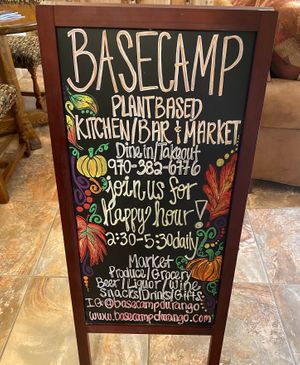 BASECAMP
PLANTBASED
KITCHEN/BAR & MARKET
Dine in/Takeout
970-382-6776
join us for
Happy hour!
2:30-5:30 daily
Market
Produce/Grocery
Beer/Liquor/Wine
Snacks/Drinks/Gifts
IG@basecampdurango
www.basecampdurango.com